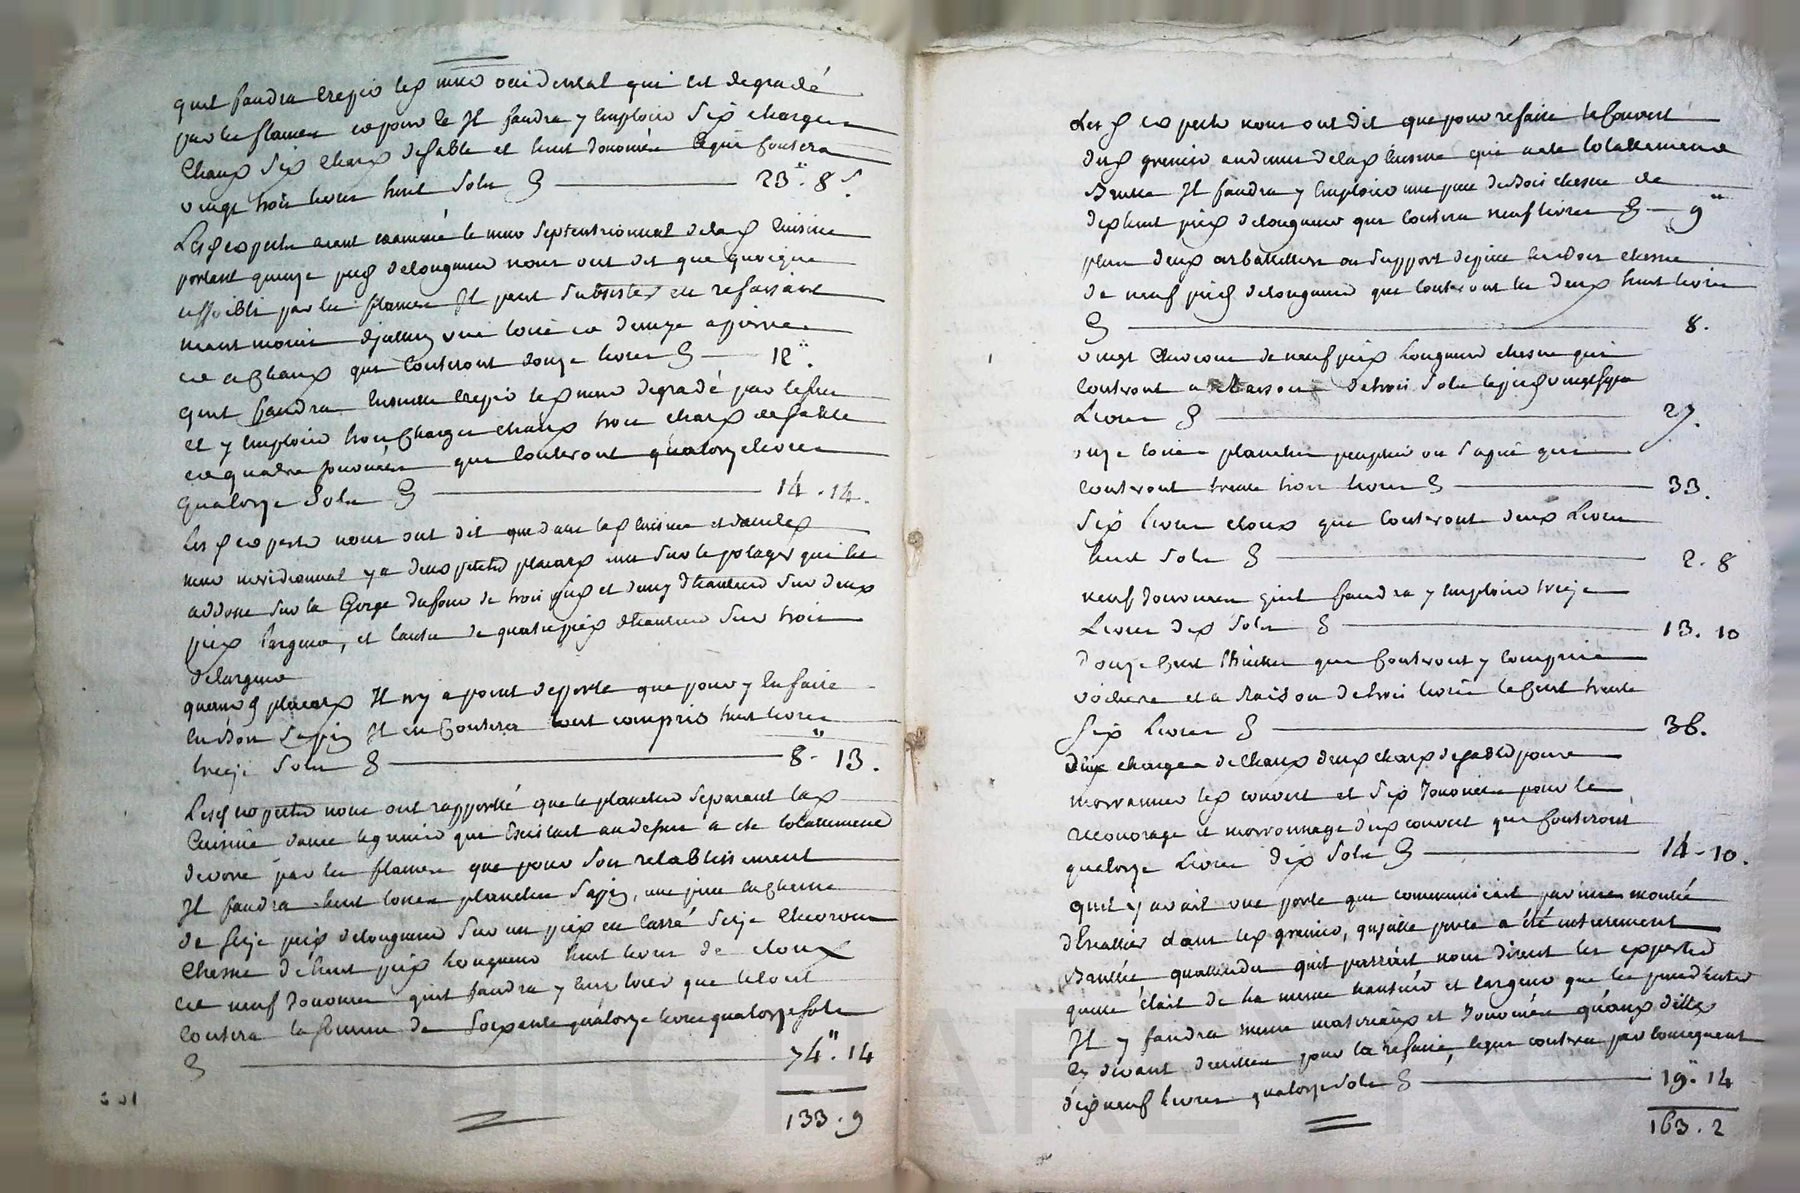 quil faudra crepir led mur occidental qui est degradé
par les flames et pour ce Il faudra y emploier Six charges
Chaux Six chars de sable et huit Journées ce qui coutera
vingt trois livres huit Sols 23" 8 s.
Lesd experts ayant examiné le mur Septentrionnal de lad Cuisine
portant quinze pieds de longueur nous ont dit que quoique
affoibli par les flames Il peut Subsister en refaisant
neant moins une toise et demye a pierre
et a Chaux qui Couteront douze livres 12".
quil faudra ensuitte crepir led mur degradé par le feu
et y emploier trois Charges chaux trois chars de sable
et quatre journées que Couteront quatorze livres
quatorze Sols 14 . 14.
Lesd experts nous ont dit que dans lad Cuisine et dans led
mur meridionnal y a deux petits placards un Sur le potager qui est
adossé Sur la Gorge du four de trois pieds et demy d'hauteur Sur deux
pieds largeur, et l'autre de quatre pieds d'hauteur Sur trois
de largeur
quauxd placards Il n'y a point de porte que pour y en faire
en Bois Sapin Il en Coutera tout compris huit livres
treize Sols 8" 13.
Lesd experts nous ont rapporté que le plancher Separant lad
Cuisine davec le grenier que Existait au dessus a eté totallement
devoré par les flames que pour Son retablissement
Il faudra huit toises plancher Sapin, une piece en Chesne
de Seize pieds de longueur Sur un pied en Carré Seize Chevrons
Chesne de huit pieds longueur huit livres de cloux
et neuf Journées quil faudra y emploier que le tout
Coutera la Somme de Soixante quatorze livres quatorze Sols
74" 14
133 . 9
Lesd experts nous ont dit que pour refaire le Couvert
dud grenier au dessus de lad Cuisine qui a eté totallement
Brulée Il faudra y emploier une piece de Bois chesne de
dix huit pieds de longueur que Coutera neuf livres 9"
plus deux arbalettiers ou Support de piece en Bois chesne
de neuf pieds de longueur que Couteront les deux huit livres
8.
vingt Chevrons de neuf pieds longueur chesne qui
Couteront a Raison de trois Sols le pied vingt Sept
Livres 27.
onze toises plancher peuplier ou Sapin qui
Couteront trente trois livres 33.
Six livres cloux que Couteront deux Livres
huit Sols 2 . 8
neuf Journées quil faudra y emploier treize
Livres dix Sols 13 . 10
douze Cent thuiles que Couteront y compris
voiture et a Raison de trois livres le Cent trente
Six Livres 36.
deux charges de Chaux deux chars de sable pour
marronner led couvert et Six Journées pour le
recouvrage et marronnage dud couvert que Couteront
quatorze Livres dix Sols 14 - 10.
quil y avait une porte que communiciait par une montée
d'Escallier dans led grenier, qu'jcelle porte a été entierement
Brullée quattendu quil parrait nous dirent les experts
quelle était de la meme hauteur et largeur que les precedentes
Il y faudra meme materiaux et Journées qu'aux dittes
cy devant decrites pour la refaire, lequel coutera par consequent
dixneuf livres quatorze Sols 19" 14
163 . 2